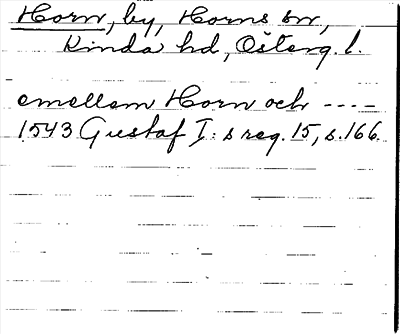 Horn, by, Horns sn,
Kinda hd, Österg. l.
emellam Horn och ----
1543 Gustaf I:s reg. 15, s. 166.